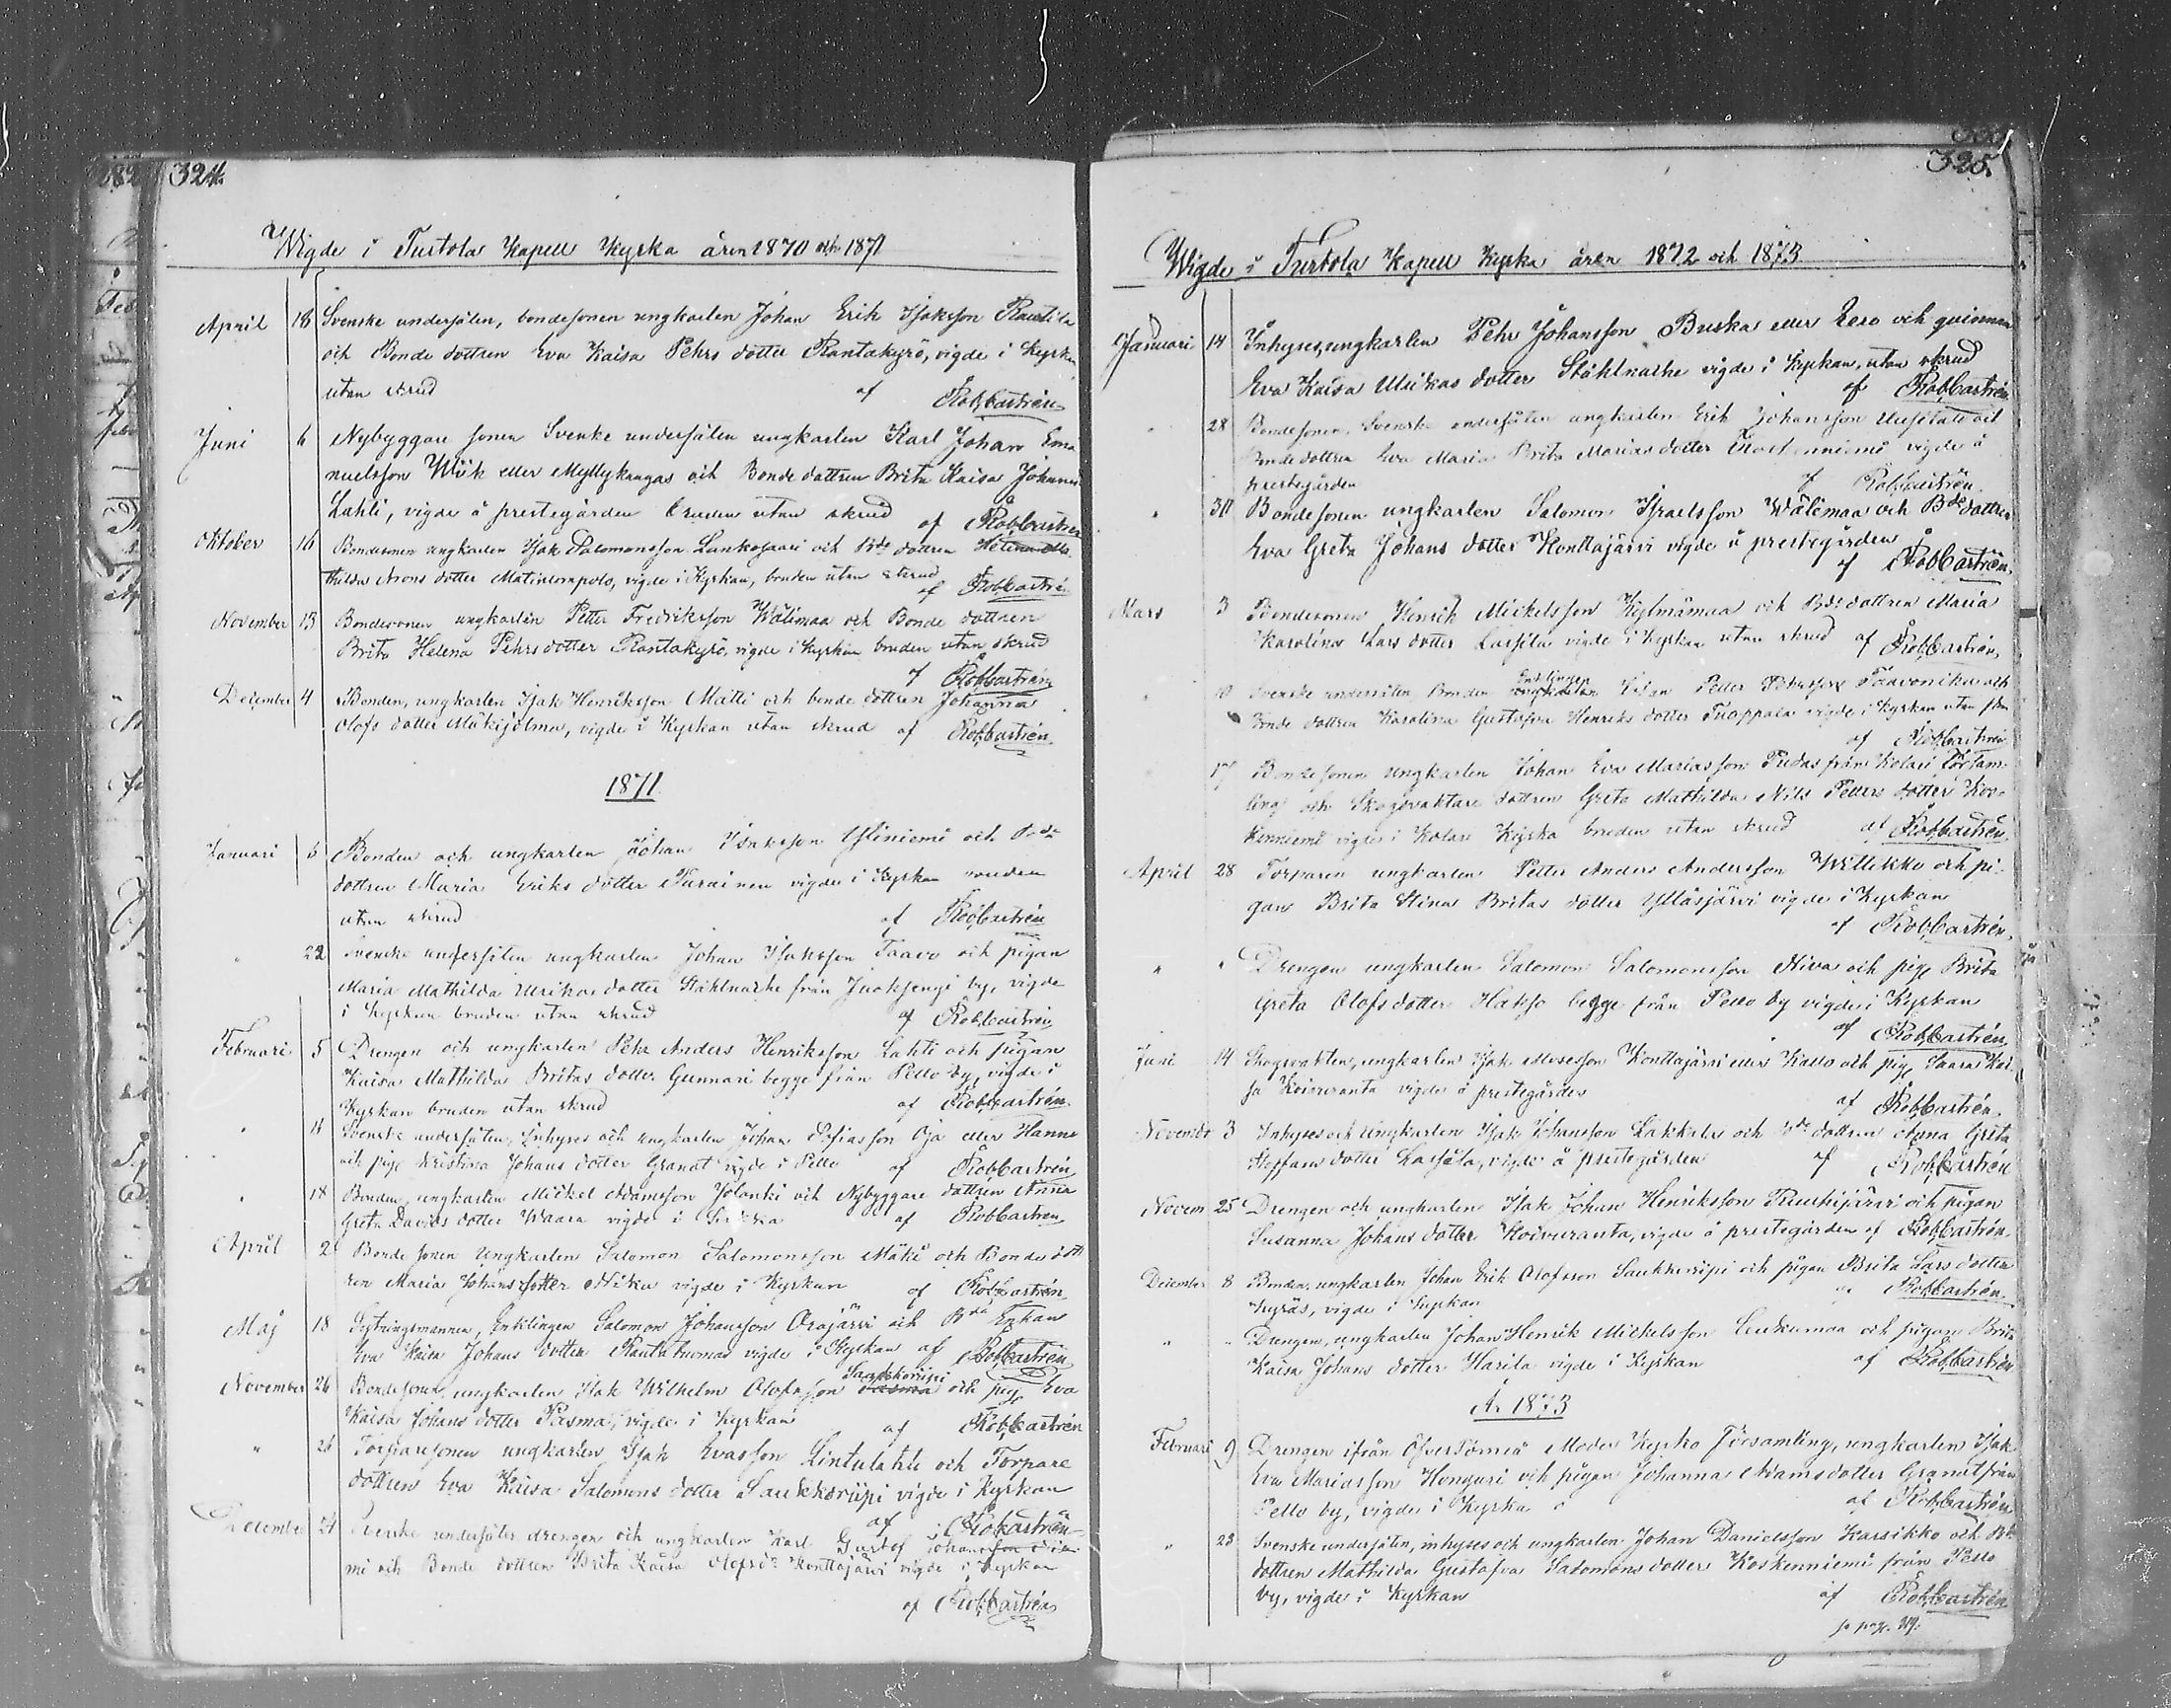 324.
Wigde i Turtola Kapell Kyrka åren 1870 och 1871
April 18 Svenske undersåten, bondesonen ungkarlen Johan Erik Isaksson Rautila
och Bonde dottren Eva Kaisa Pehrs dotter Rantakyrö, vigde i Kyrkan
utan skrud af Rob. Castrén
Juni 6 Nybyggare sonen Svenske undersåten ungkarlen Karl Johan Ema
nuelsson Wiik eller Myllykangas och Bonde dottren Brita Kaisa Johans
Lahti, vigde å prestegården bruden utan skrud af Rob Castrén
Oktober 16 Bondesonen ungkarlen Isak Salomonsson Lankojaari och Bde dottren Helena Ma
thilda Arons dotter Matinlompolo, vigde i Kyrkan, bruden utan skrud af Rob Castrén
November 13 Bondesonen ungkarlen Petter Fredriksson Wälimaa och Bonde dottren
Brita Helena Pehrs dotter Rantakyrö, vigde i Kyrkan bruden utan skrud
af Rob Castrén
December 4 Bonden, ungkarlen Isak Henriksson Matti och bonde dottren Johanna
Olofs dotter Mäkijolma, vigde i Kyrkan utan skrud af Rob Castrén
1871.
Januari 6 Bonden och ungkarlen Johan Isaksson Yliniemi och Bde
dottren Maria Eriks dotter Turainen vigde i Kyrkan bruden
utan skrud af Rob Castrén
" 22 Svenske undersåten ungkarlen Johan Isaksson Taavo och pigan
Maria Mathilda Ulrikas dotter Stålnacke från Juoksengi by, vigde
i Kyrkan bruden utan skrud af Rob Castrén
Februari 5 Drengen och ungkarlen Pehr Anders Henriksson Lahti och pigan
Kaisa Mathilda Britas dotter Gunnari begge från Pello by, vigde i
Kyrkan bruden utan skrud af Rob Castrén
" 11 Svenske undersåten, Inhyses och ungkarlen Johan Sofiasson Oja eller Hannu
och pig. Kristina Johans dotter Granat vigde i Pello af Rob Castrén
" 18 Bonden, ungkarlen Mickel Adamsson Jolanki och Nybyggare dottren Anna
Greta Davids dotter Waara vigde i af Rob Castrén
April 2 Bonde sonen Ungkarlen Salomon Salomonsson Mäki och Bonde dott
ren Maria Johans dotter Niku vigde i Kyrkan af Rob Castrén
Maj 18 Sytningsmannen, Enklingen Salomon Johansson Orajärvi och Bde Enkan
Eva Kaisa Johans dotter Rantatuomas vigde i Kyrkan af Rob Castrén
November 26 Bondesonen, ungkarlen Isak Wilhelm Olofsson Saukkoriipi och pig. Eva
Kaisa Johans dotter Pasma, vigde i Kyrkan af Rob Castrén
" 26 Torparesonen ungkarlen Isak Evasson Lintulahti och Torpare
dottren Eva Kaisa Salomons dotter Saukkoriipi vigde i Kyrkan
af Rob Castrén
December 21 Svenske undersåten drengen och ungkarlen Karl Gustaf Johansson
mi och Bonde dottren Brita Kaisa Olofsdr Konttajärvi vigde i Kyrkan
af Rob Castrén
325.
Wigde i Turtola Kapell Kyrka åren 1872 och 1873
Januari 14 Inhyses, ungkarlen Pehr Johansson Buska eller Eero och quinnan
Eva Kaisa Ulrikas dotter Ståhlnacke vigde i Kyrkan, utan skrud
af Rob Castrén
" 28 Bondesonen, Svenske undersåten ungkarlen Erik Johansson och
Bonde dottren Eva Maria Brita Marias dotter vigde å
prestegården af Rob Castrén
" 30 Bondesonen ungkarlen Salomon Israelsson Wälimaa och Bde dottren
Eva Greta Johans dotter Konttajärvi vigde å prestegården
af Rob Castrén
Mars 3 Bondesonen Henrik Mickelsson Kylmämaa och Bde dottren Maria
Karolina Lars dotter Lassila vigde i Kyrkan utan skrud af Rob Castrén
" 10 Svenske undersåten Bonden Enklingen Johan Petter Petersson Paavoniku och
Bonde dottren Karolina Gustafva Henriks dotter Tuoppala vigde i Kyrkan utan skru
af Rob Castrén
17 Bondesonen Ungkarlen Johan Eva Mariasson Pudas från Kolari Försam
ling och Skogsvaktare dottren Greta Mathilda Nils Petters dotter Kos-
kenniemi vigde i Kolari Kyrka bruden utan skrud af Rob Castrén
April 28 Torparen ungkarlen Petter Anders Andersson Willikko och pi-
gan Brita Stina Britas dotter Ylläsjärvi vigde i Kyrkan
af Rob Castrén
" " Drengen ungkarlen Salomon Salomonsson Niva och pig. Brita
Greta Olofs dotter Hasso begge från Pello by vigde i Kyrkan
af Rob Castrén
Juni 14 Skogsvakten, ungkarlen Isak Mosesson Konttajärvi eller Kallo och pig. Saara Kai
sa Koivuranta vigde å prestegården af Rob Castrén
November 3 Inhyses och Ungkarlen Isak Johansson Lakkala och Bde dottren Anna Greta
Staffans dotter Lassila, vigde å prestegården af Rob Castrén
Novem 25 Drengen och ungkarlen Isak Johan Henriksson Ruuhijärvi och pigan
Susanna Johans dotter Koivuranta, vigde å prestegården af Rob Castrén
December 8 Bonden, ungkarlen Johan Erik Olofsson Saukkoriipi och pigan Brita Lars dotter
Nyräs, vigde i Kyrkan af Rob Castrén
" " Drengen, ungkarlen Johan Henrik Mickelsson Leukumaa och pigan Brita
Kaisa Johans dotter Harila vigde i Kyrkan af Rob Castrén
År 1873
Februari 9 Drengen ifrån ÖfverTorneå Moder Kyrko Församling, ungkarlen Isak
Eva Mariasson Honguri och pigan Johanna Adams dotter Granat från
Pello by, vigde i Kyrka af Rob Castrén
" 23 Svenske undersåten, inhyses och ungkarlen Johan Danielsson Karsikko och Bde
dottren Mathilda Gustafva Salomons dotter Koskenniemi från Pello
by, vigde i Kyrkan af Rob Castrén